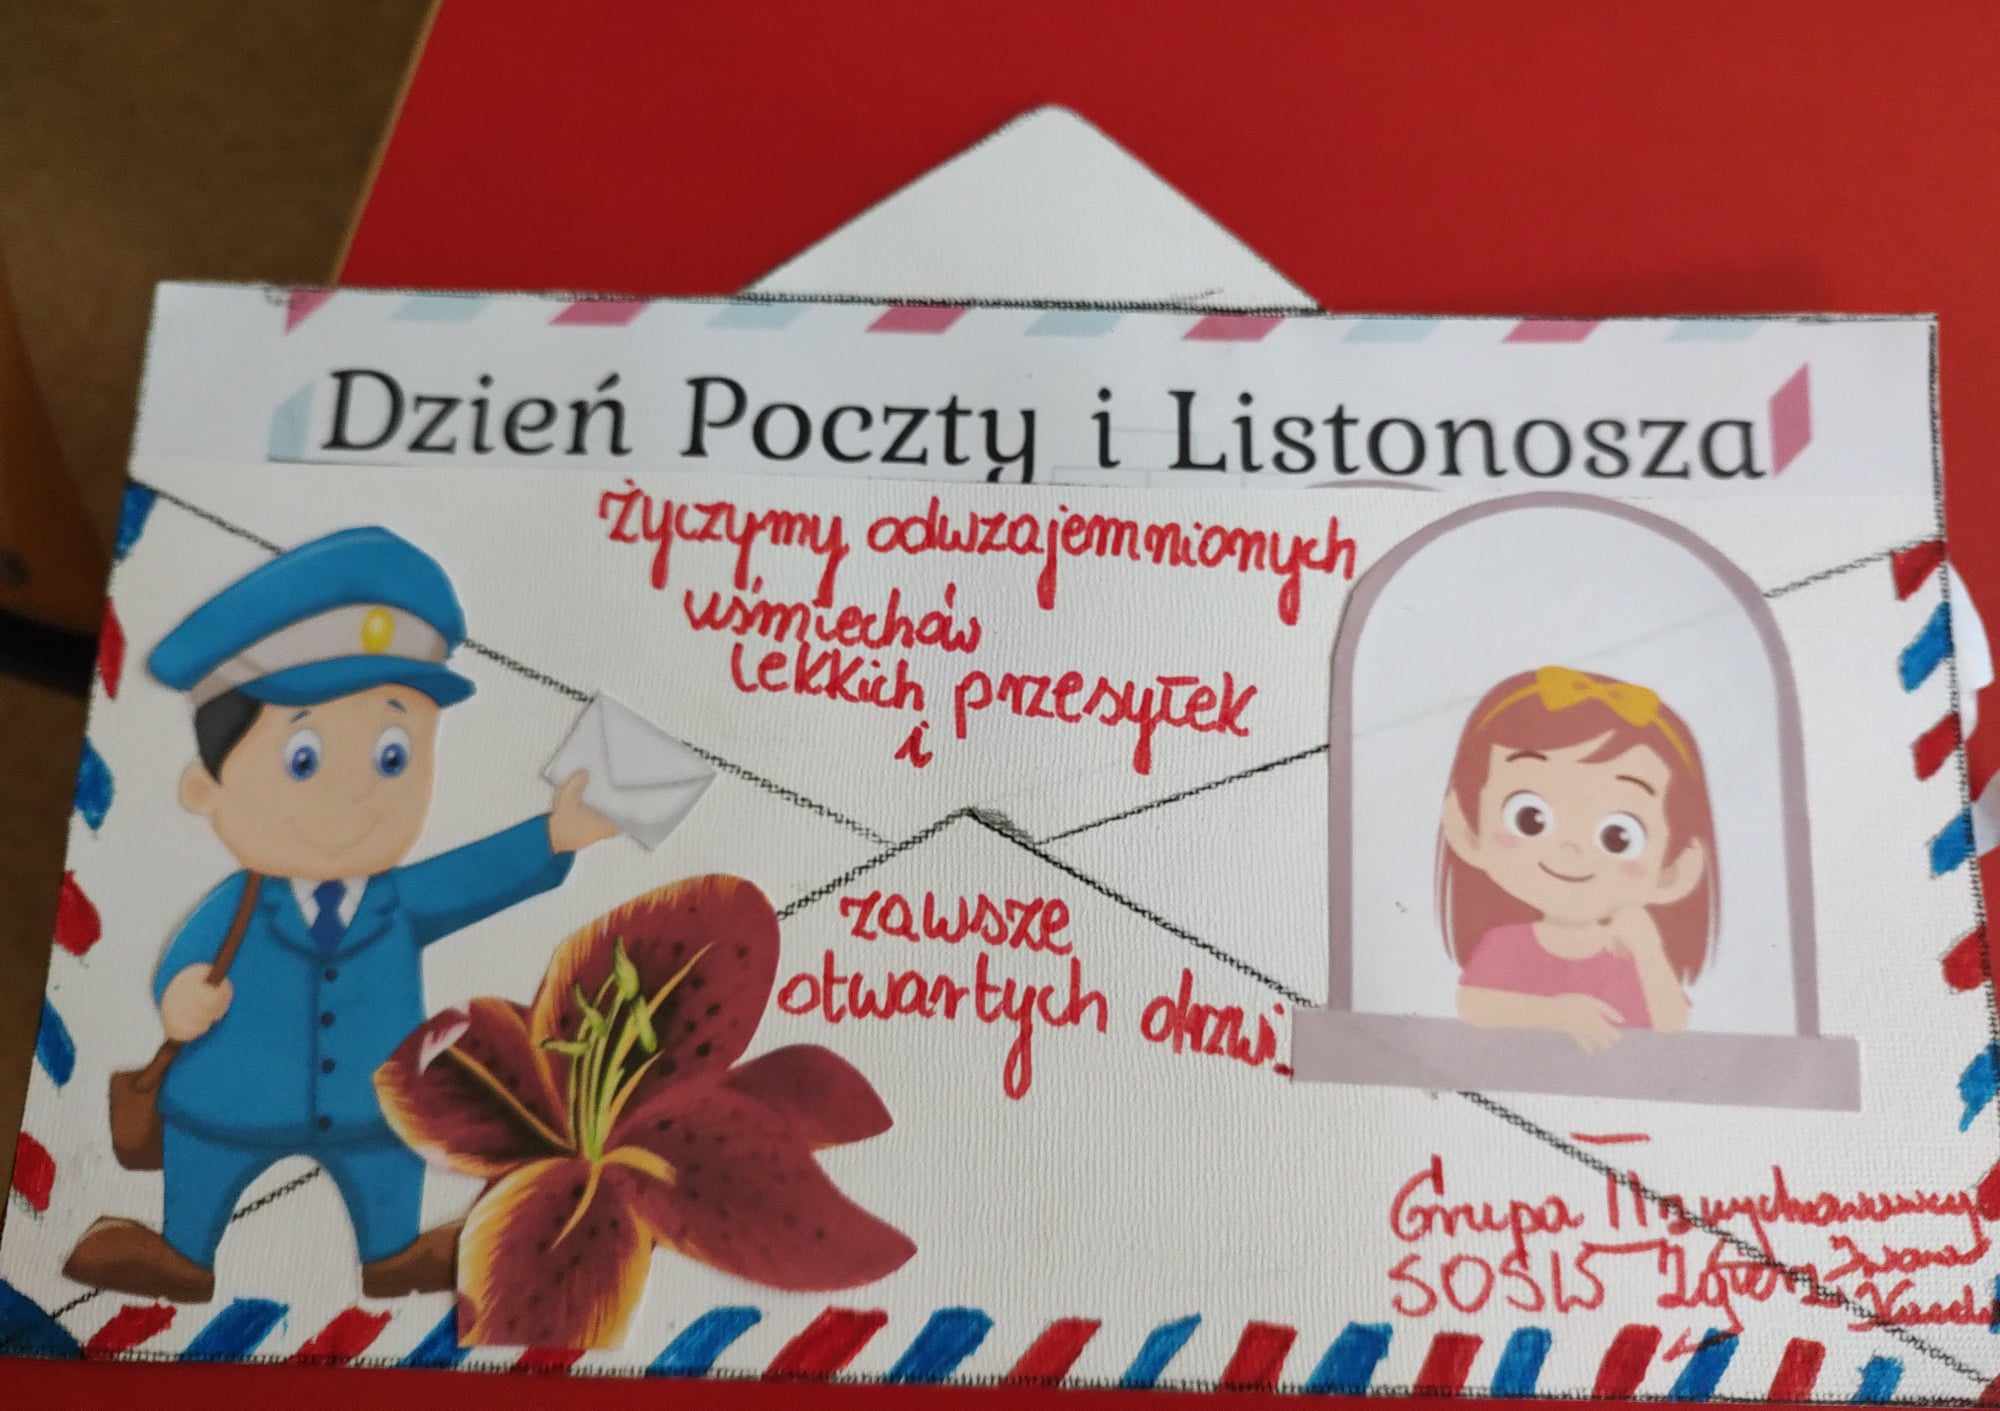 Dzień Poczty i Listonosza
Życzymy odwzajemnionych
uśmiechów
lekkich przesyłek
i
zawsze
otwartych drzwi.
Grupa II z wychowawcą
SOSW Zgierz Iwona